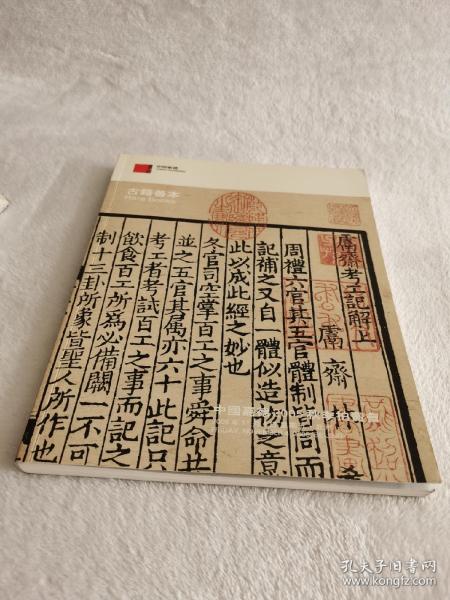 中國嘉德
古籍善本
Rare Books
鬳齋考工記解上
鬳齋林
周禮六官其五官體制皆同而
記補之又自一體似造物之意
此以成此經之妙也
冬官司空掌百工之事舜命共
並之五官其寓亦六十此記只
考工者考試百工之事而記之
飲食百工所為必備闕一不可
制十三卦所象皆聖人所作也
中國嘉德2005秋季拍賣會
孔夫子旧书网
www.kongfz.com